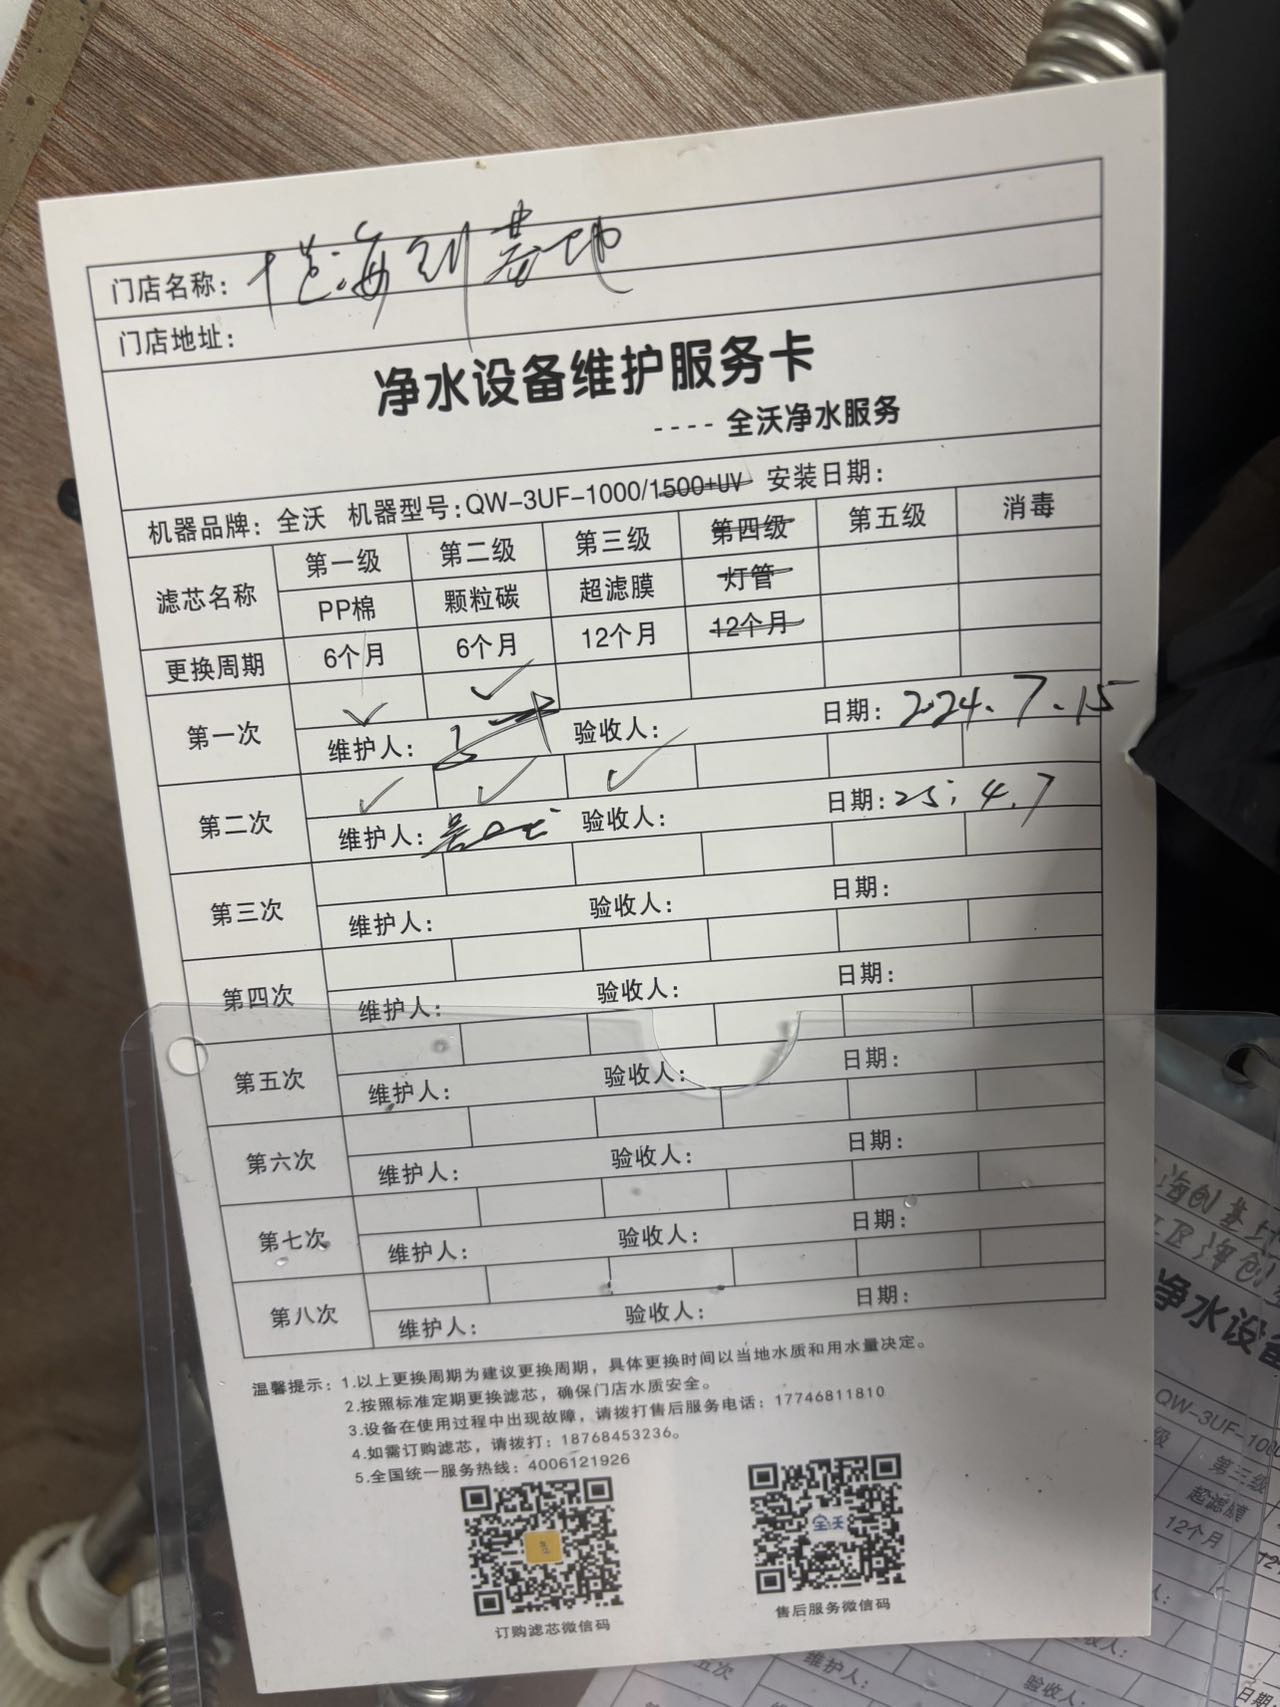 门店名称：海创基地
门店地址：
净水设备维护服务卡
----全沃净水服务
机器品牌：全沃 机器型号：QW-3UF-1000/1500+UV 安装日期：
滤芯名称 第一级 第二级 第三级 第四级 第五级 消毒
PP棉 颗粒碳 超滤膜 灯管
更换周期 6个月 6个月 12个月 12个月
第一次 ✓ ✓
维护人： 验收人： 日期：2024.7.15
第二次 ✓ ✓ ✓
维护人： 验收人： 日期：25.4.7
第三次
维护人： 验收人： 日期：
第四次
维护人： 验收人： 日期：
第五次
维护人： 验收人： 日期：
第六次
维护人： 验收人： 日期：
第七次
维护人： 验收人： 日期：
第八次
维护人： 验收人： 日期：
温馨提示：1.以上更换周期为建议更换周期，具体更换时间以当地水质和用水量决定。
2.按照标准定期更换滤芯，确保门店水质安全。
3.设备在使用过程中出现故障，请拨打售后服务电话：17746811810
4.如需订购滤芯，请拨打：18768453236。
5.全国统一服务热线：4006121926
全沃
订购滤芯微信码
售后服务微信码
海创基
海创
净水设
QW-3UF-100
级 第三级
超滤膜
12个月
验收人：
五次 维护人：
验收人： 日期